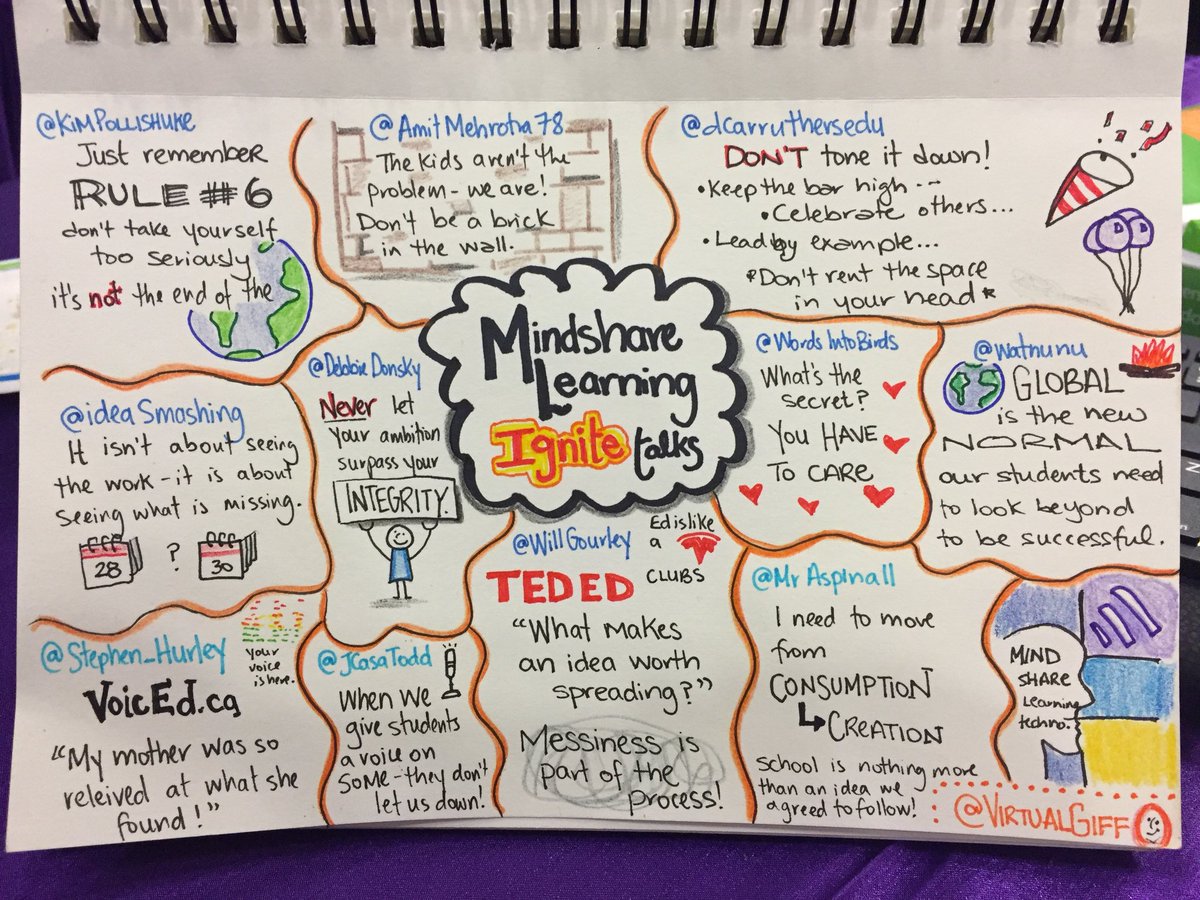 @KimPollishuke
Just remember
RULE #6
don't take yourself
too seriously
it's not the end of the
@AmitMehrotra78
The kids aren't the
problem - we are!
Don't be a brick
in the wall.
@dcarruthersedu
DON'T tone it down!
• Keep the bar high --
• Celebrate others...
• Lead by example...
*Don't rent the space
in your head*
Mindshare
Learning
Ignite talks
@ideaSmashing
It isn't about seeing
the work - it is about
seeing what is missing.
28 ? 30
@DebbieDonsky
Never let
your ambition
surpass your
INTEGRITY.
@WordsIntoBirds
What's the
secret?
YOU HAVE
TO CARE
@watnunu
GLOBAL
is the new
NORMAL
our students need
to look beyond
to be successful.
@Stephen_Hurley
your
voice
is here.
VoicEd.ca
"My mother was so
releived at what she
found!"
@JCasaTodd
When we
give students
a voice on
SOME - they don't
let us down!
@WillGourley
Ed is like
a
CLUBS
TED ED
"What makes
an idea worth
spreading?"
Messiness is
part of the
process!
@MrAspinall
I need to move
from
CONSUMPTION
CREATION
School is nothing more
than an idea we
agreed to follow!
MIND
SHARE
Learning
techno.
@VIRTUALGIFF